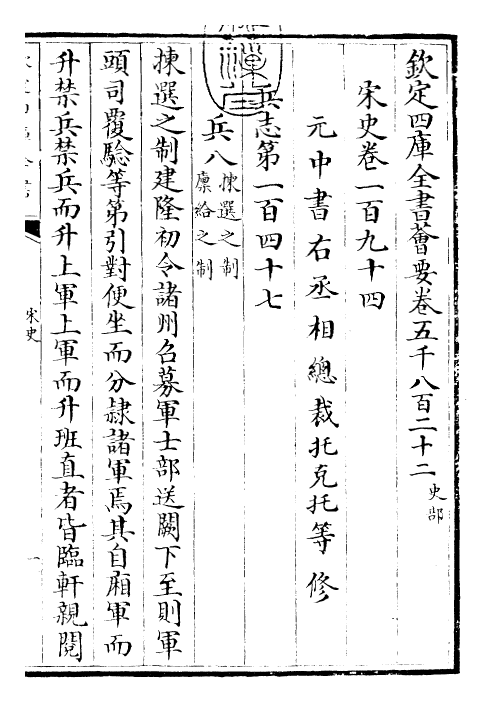 欽定四庫全書薈要卷五千八百二十二 史部
宋史卷一百九十四
元中書右丞相總裁托克托等修
兵志第一百四十七
兵八 揀選之制 廩給之制
揀選之制建隆初令諸州召募軍士部送闕下至則軍
頭司覆驗等第引對便坐而分隷諸軍焉其自廂軍而
升禁兵禁兵而升上軍上軍而升班直者皆臨軒親閱
宋史
一